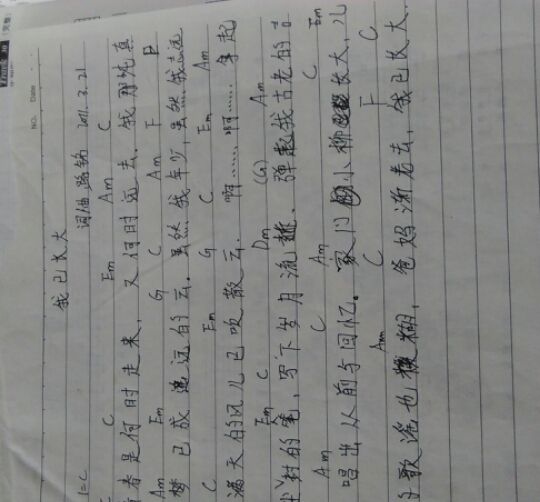 NO. Date
我已长大
词曲 路铭 2011.3.21
1=C
C Em Am C
春是何时走来，又何时远去。我那纯真
Am Em G C Am F D
梦已成遥远的云。虽然我年少，虽然我志远
C Em G C Em Am
满天的风儿已吹散云。啊……啊……拿起
Em C Dm (G) Am
尘封的笔，写下岁月流逝、弹起我古老的吉
Am C Am C Em
唱出从前与回忆。家门的小柳长大，儿
Am C F C
歌谣也模糊，爸妈渐老去，我已长大